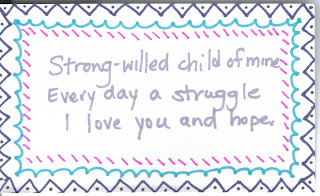 Strong-willed child of mine
Every day a struggle
I love you and hope.